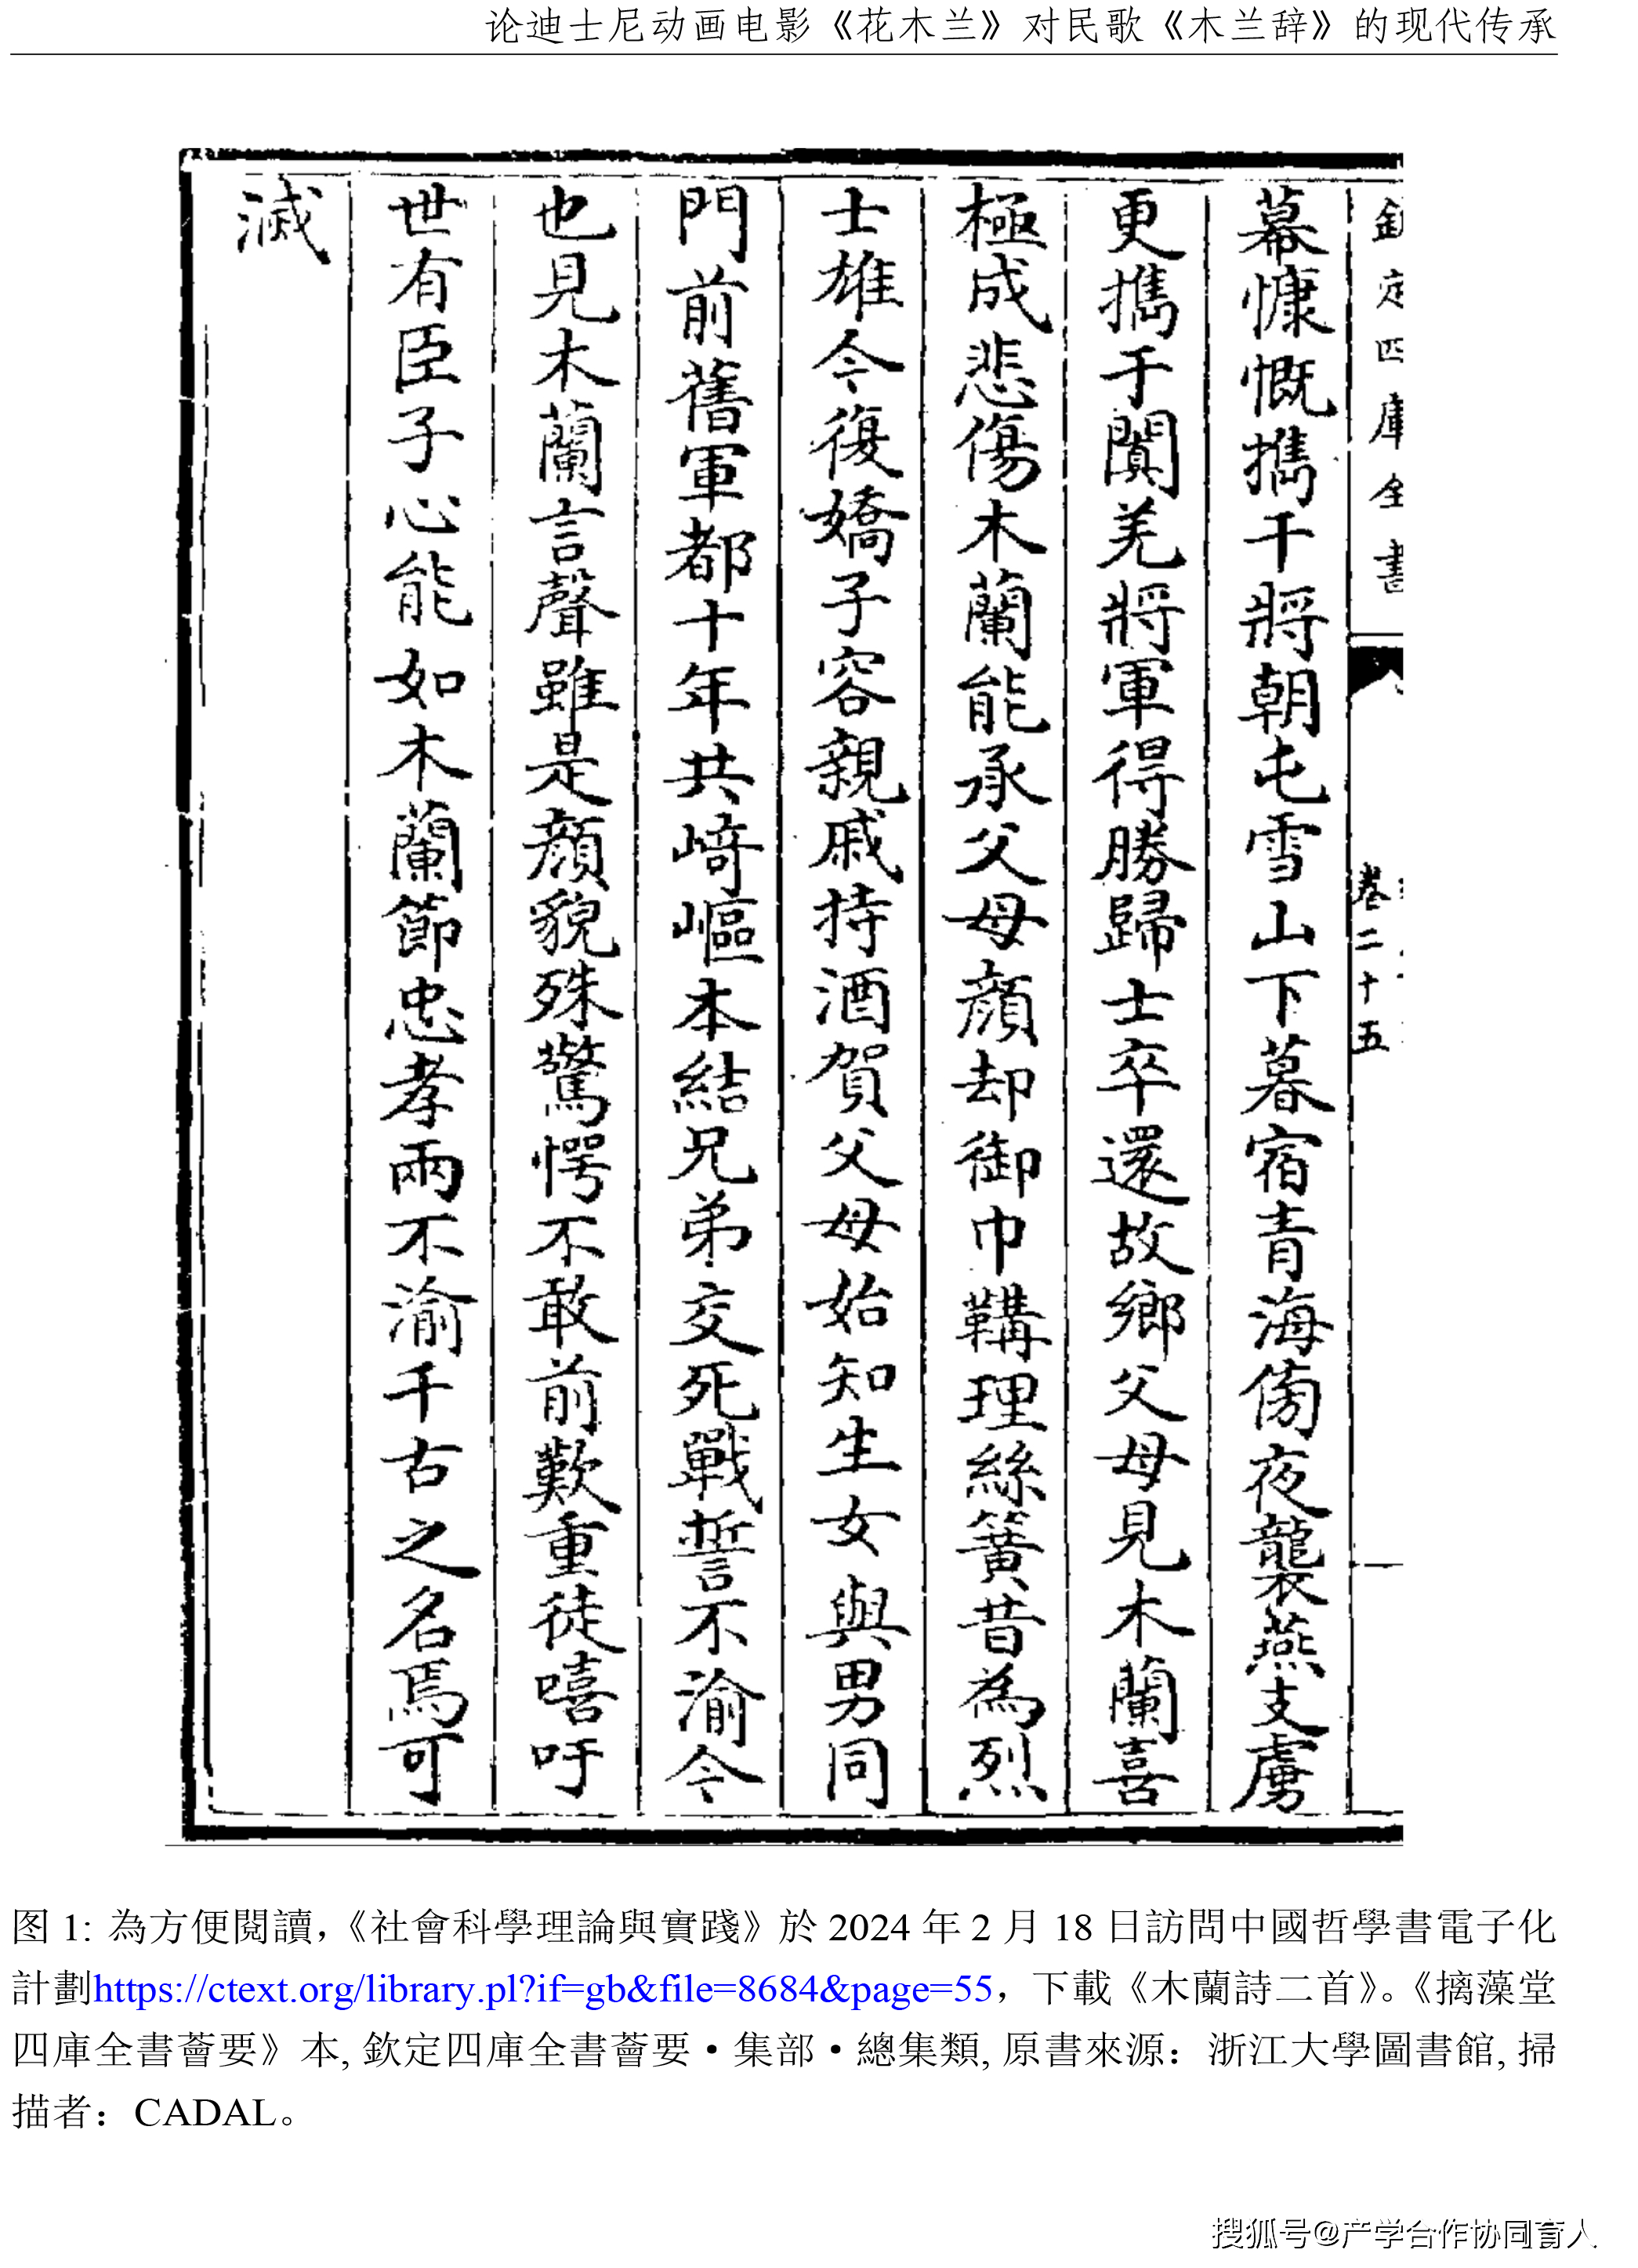 论迪士尼动画电影《花木兰》对民歌《木兰辞》的现代传承
欽定四庫全書
卷二十五
幕慷慨攜千將朝屯雪山下暮宿青海傍夜襲燕支虜
更攜于闐羌將軍得勝歸士卒還故鄉父母見木蘭喜
極成悲傷木蘭能承父母顔却御巾鞲理絲簧昔為烈
士雄今復嬌子容親戚持酒賀父母始知生女與男同
門前舊軍都十年共崎嶇本結兄弟交死戰誓不渝今
也見木蘭言聲雖是顔貌殊驚愕不敢前歎重徒嘻吁
世有臣子心能如木蘭節忠孝兩不渝千古之名焉可
滅
图 1: 為方便閲讀，《社會科學理論與實踐》於 2024 年 2 月 18 日訪問中國哲學書電子化
計劃https://ctext.org/library.pl?if=gb&file=8684&page=55，下載《木蘭詩二首》。《摛藻堂
四庫全書薈要》本, 欽定四庫全書薈要·集部·總集類, 原書來源：浙江大學圖書館, 掃
描者：CADAL。
搜狐号@产学合作协同育人